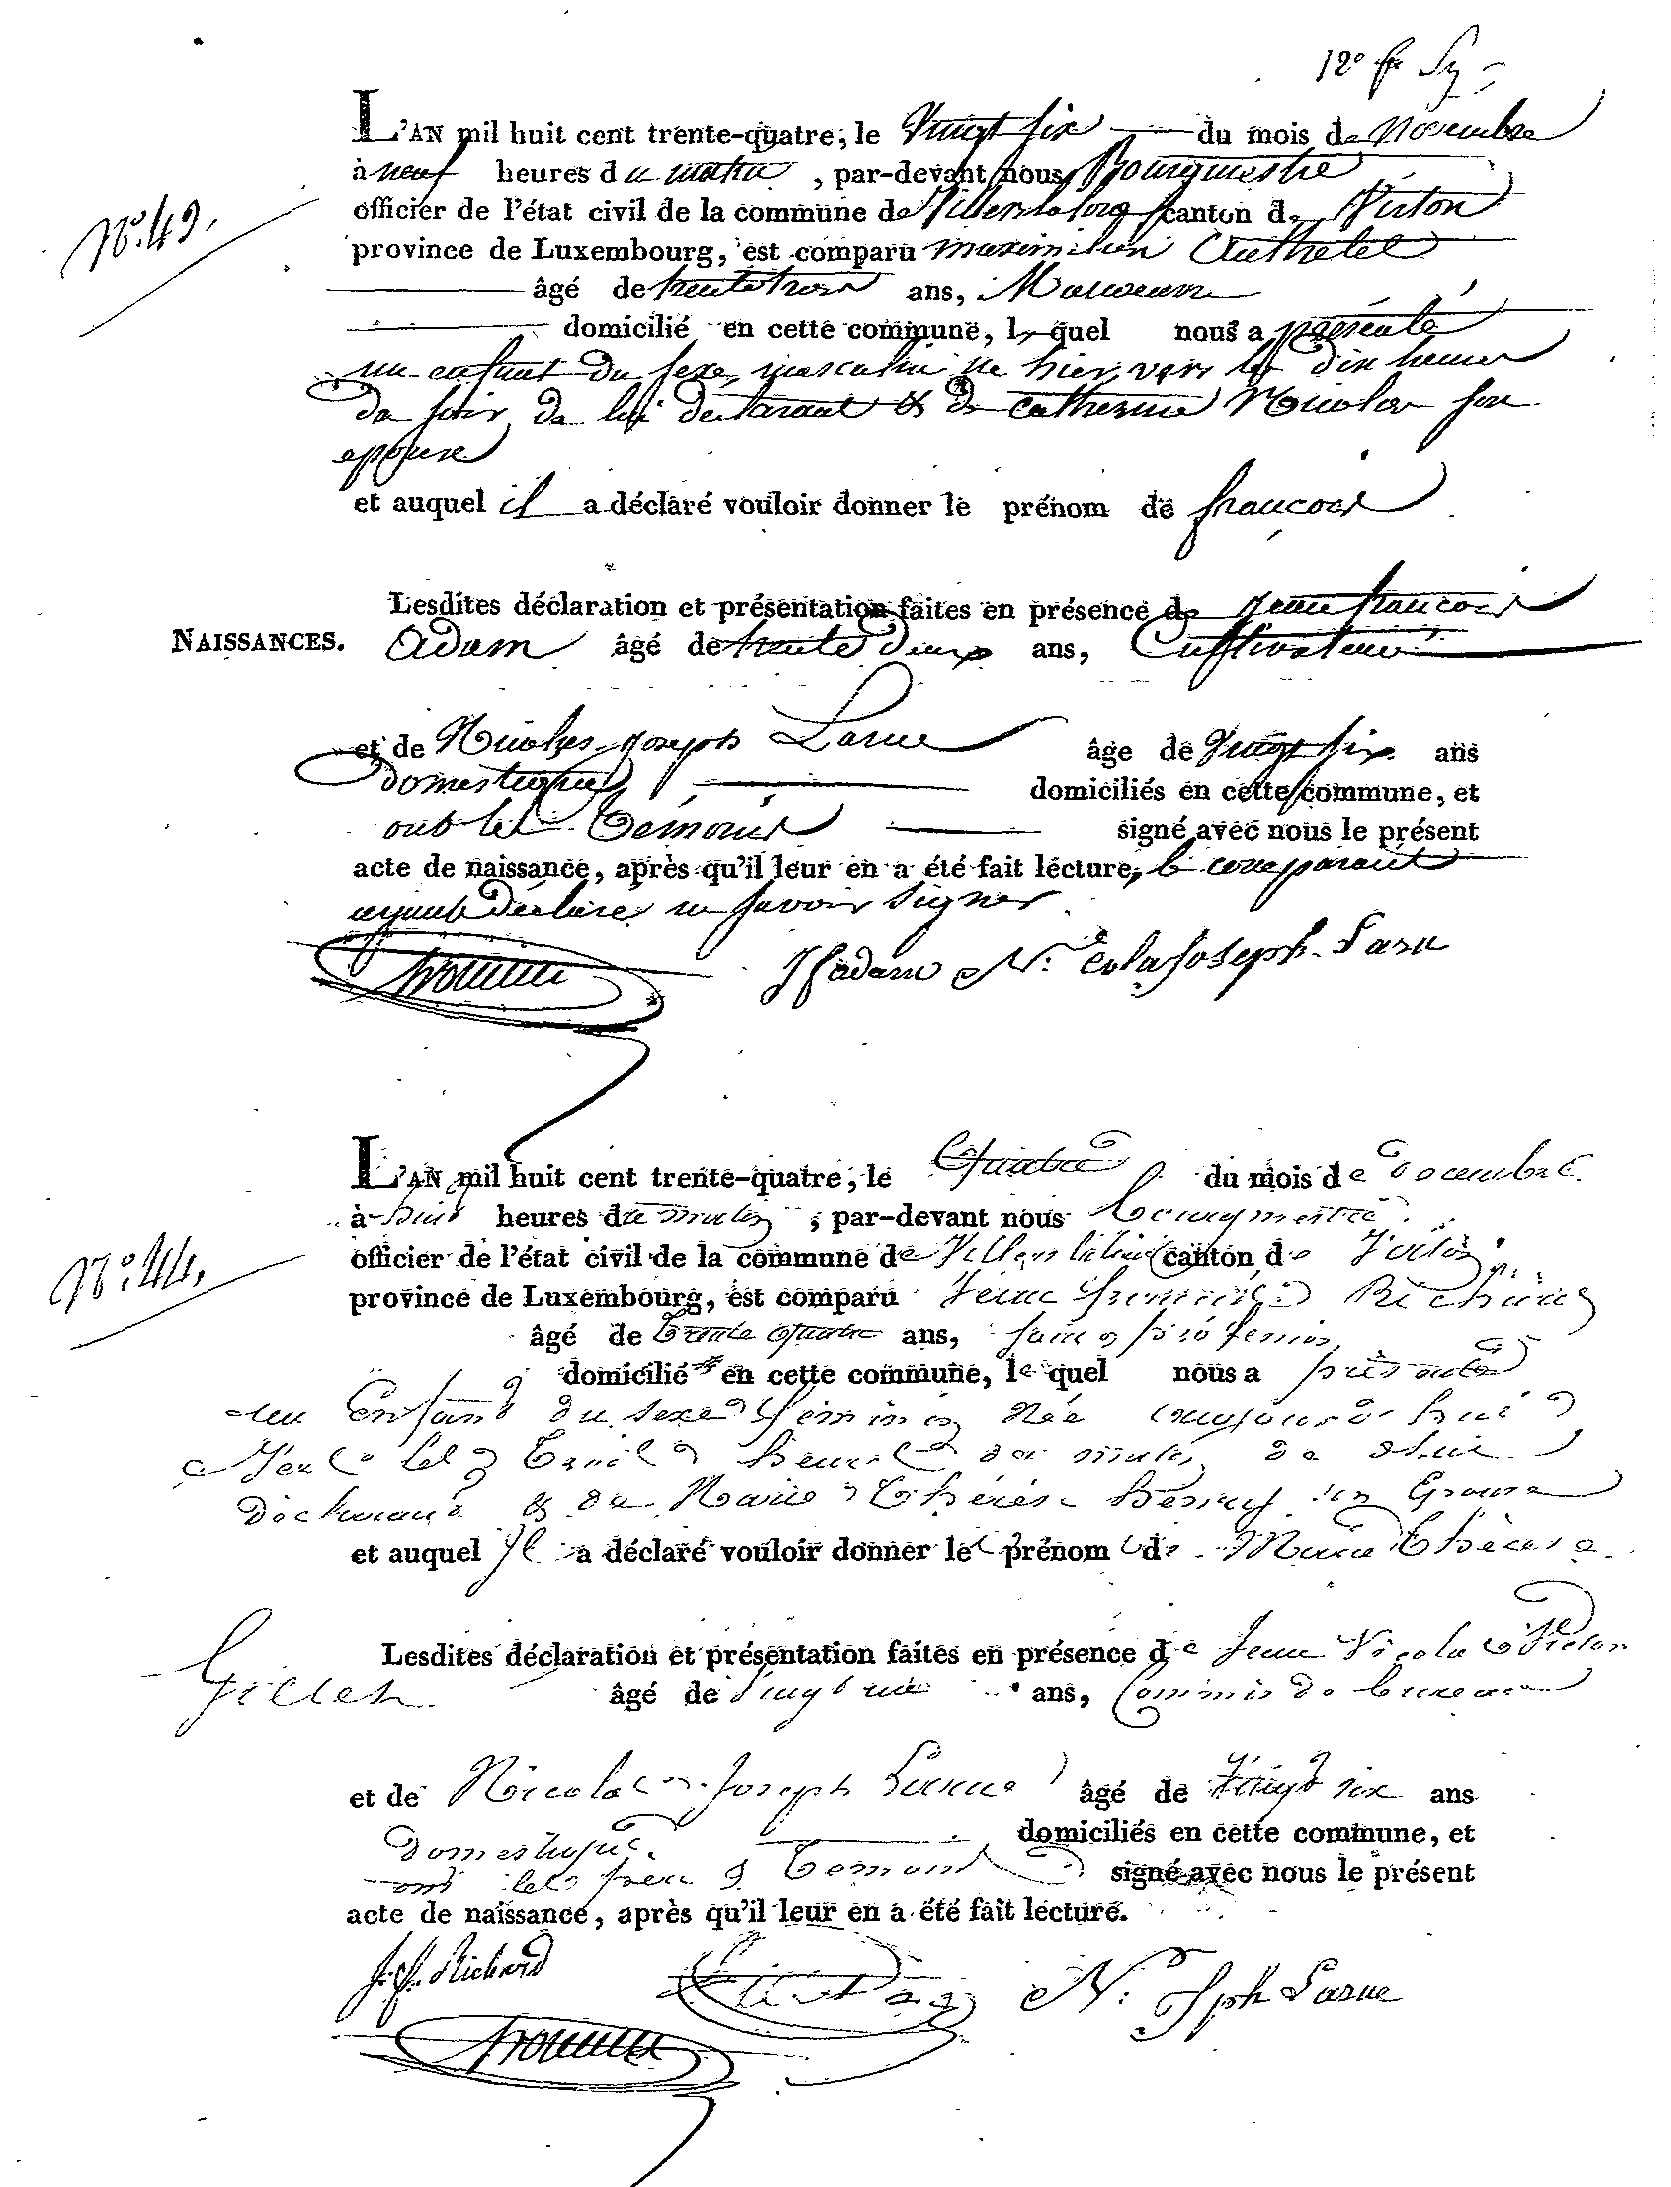 12e
L'AN mil huit cent trente-quatre, le Vingt six du mois de Novembre
à neuf heures du matin, par-devant nous Bourgmestre
N°. 43.
officier de l'état civil de la commune de Villers la loue canton de Virton
province de Luxembourg, est comparu Maximilien Authelet
âgé de trente trois ans, Manoeuvre
domicilié en cette commune, lequel nous a présenté
un enfant du sexe masculin né hier vers les dix heures
du soir de lui déclarant & de Catherine Nicolas son
epouse
et auquel il a déclaré vouloir donner le prénom de françois
Lesdites déclaration et présentation faites en présence de Jean françois
NAISSANCES.
Adam âgé de trente Deux ans, Cultivateur
et de Nicolas Joseph Larue âgé de Vingt six ans
domestique domiciliés en cette commune, et
ont les témoins signé avec nous le présent
acte de naissance, après qu'il leur en a été fait lecture, le comparant
ayant déclaré ne savoir signer
Jfadam Nicolas Joseph Larue
L'AN mil huit cent trente-quatre, le Quatre du mois de Decembre
à huit heures du matin, par-devant nous bourgmestre
N°. 44.
officier de l'état civil de la commune de Villers laloue canton de Virton
province de Luxembourg, est comparu Jean françois Richard
âgé de trente quatre ans, sans profession
domicilié en cette commune, lequel nous a présenté
un Enfant du sexe féminin Née aujourd'hui
a les trois heures du matin de lui
déclarant & de Marie Thérèse henry son Epouse
et auquel Il a déclaré vouloir donner le prénom de Marie Thérèse
Lesdites déclaration et présentation faites en présence de Jean Nicolas
âgé de Vingt ans, Commis de bureau
et de Nicolas Joseph Larue âgé de Vingt six ans
Domestique domiciliés en cette commune, et
ont les père & Temoins signé avec nous le présent
acte de naissance, après qu'il leur en a été fait lecture.
J. f. Richard N: Jph Larue